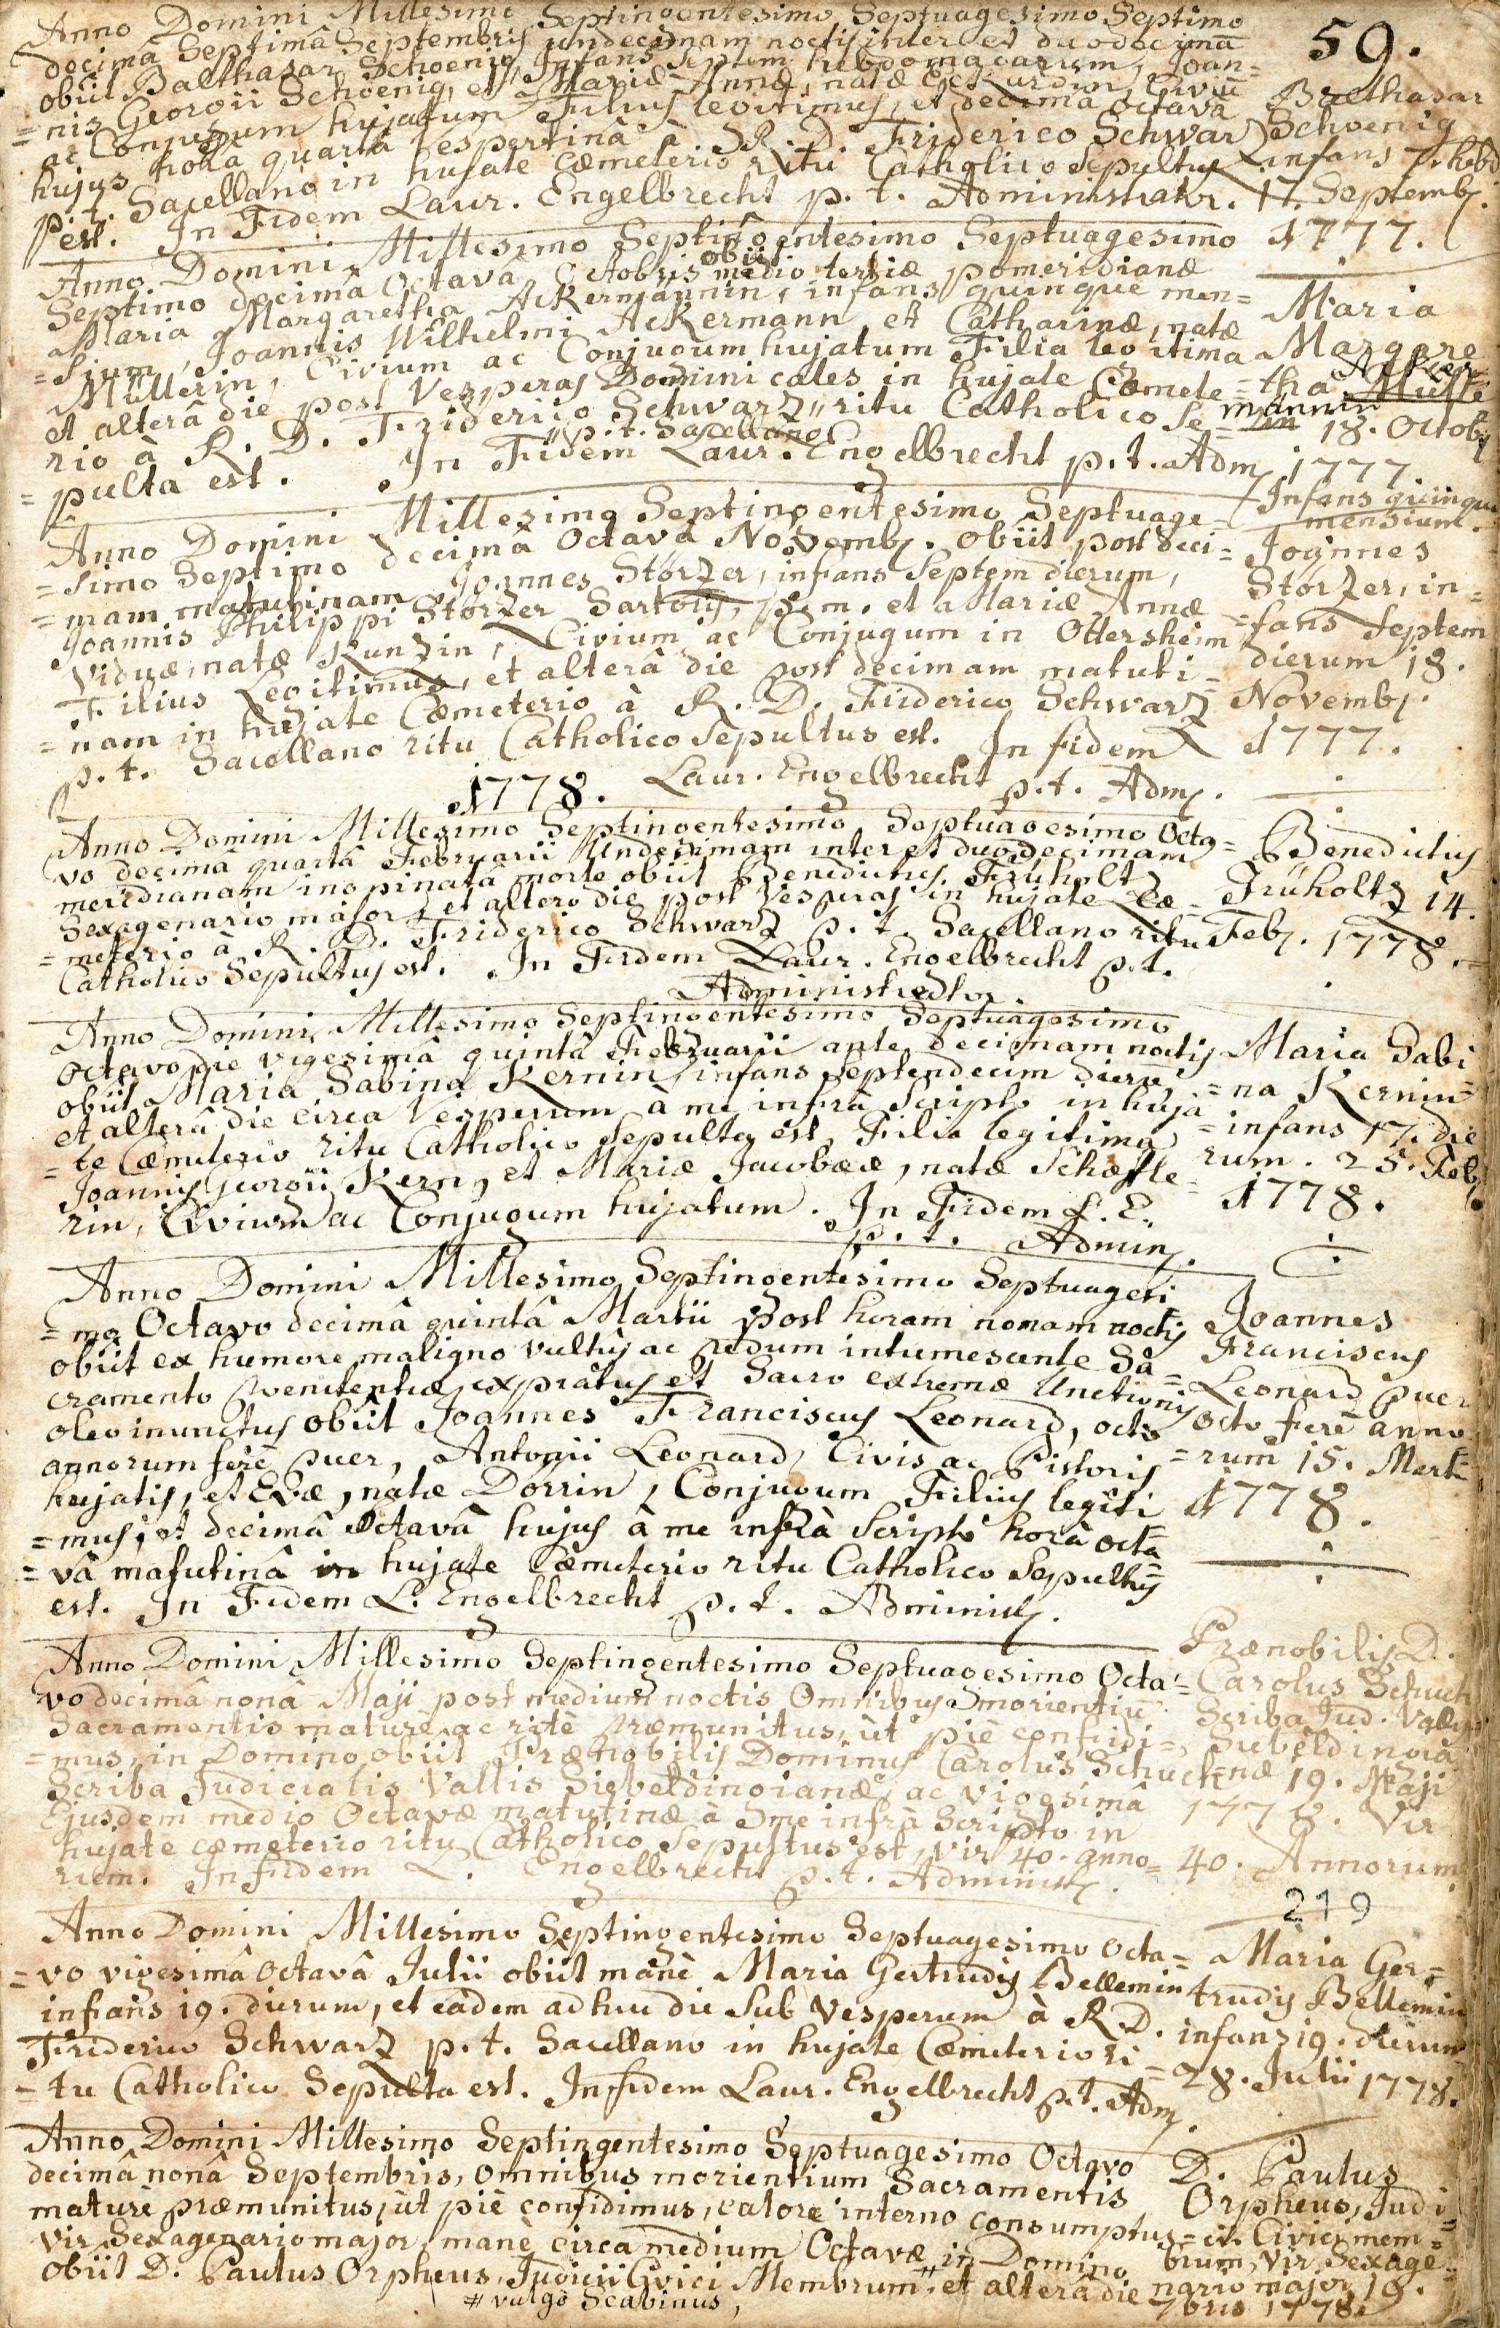 59.
Anno Domini Millesimo Septingentesimo Septuagesimo Septimo
decimâ Septimâ Septembris undecimam noctis inter et duodecimā
obiit Balthasar Schoenig, Infans Septem hebdomadarum, Joan=
=nis Georgii Schoenig, et Mariæ Annæ, natæ Civiū
ac Conjugum hujatum Filius legitimus, et decimâ octavâ
hujus horâ quartâ vespertinâ à R. D. Friderico Schwarz
p. t. Sacellano in hujate Cæmeterio ritu Catholico Sepultus
est. In Fidem Laur. Engelbrecht p. t. Administrator.
Balthasar
Schoenig
infans 7. hebd
17. Septemb.
1777.
Anno Domini Millesimo Septingentesimo Septuagesimo
Septimo decimâ Octavâ Octobris obiit medio tertiæ pomeridianæ
Maria Margaretha Ackermännin, infans quinque men=
=sium, Joannis Wilhelmi Ackermann, et Catharinæ, natæ
Müllerin, Civium ac Conjugum hujatum Filia legitima
et alterâ die post Vesperas Dominicales in hujate Cæmete=
rio à R. D. Friderico Schwarz,, ritu Catholico Se=
,, p. t. Sacellano
=pulta est. In Fidem Laur. Engelbrecht p. t. Adm.
Maria
Margare
=tha Acker
männin 18. Octob.
1777.
Infans quinque
mensium.
Anno Domini Millesimo Septingentesimo Septuage=
=simo Septimo decimâ Octavâ Novemb. obiit post deci=
=mam matutinam Joannes Störzer, infans Septem dierum,
Joannis Philippi Störzer Sartoris, p. m. et Mariæ Annæ
Viduæ, natæ Kunzin, Civium ac Conjugum in Ottersheim
Filius Legitimus, et alterâ die post decimam matuti=
=nam in hujate Cæmeterio à R. D. Friderico Schwarz
p. t. Sacellano ritu Catholico Sepultus est. In fidem
Laur. Engelbrecht p. t. Adm.
Joannes
Störzer, in=
=fans Septem
dierum 18.
Novemb.
1777.
1778.
Anno Domini Millesimo Septingentesimo Septuagesimo Octa=
vo decimâ quartâ Februarii Undecimam inter et duodecimam
meridianam inopinatâ morte obiit Benedictus Früholtz
Sexagenario major, et altero die post Vesperas in hujate Cæ=
=meterio à R. D. Friderico Schwarz p. t. Sacellano ritu
Catholico Sepultus est. In Fidem Laur. Engelbrecht p. t.
Administrator
Benedictus
Früholtz 14.
Feb. 1778.
Anno Domini Millesimo Septingentesimo Septuagesimo
Octavo die vigesimâ quintâ Februarii ante decimam noctis
obiit Maria Sabina Kernin, infans septendecim dierū,
et alterâ die circa Vesperum à me infrà Scripto in huja
=te Cæmeterio ritu Catholico Sepulta est, Filia legitima
Joannis Georgii Kern, et Mariæ Jacobææ, natæ Schæffle=
rin, Civium ac Conjugum hujatum. In Fidem L. E.
p. t. Admin.
Maria Sabi
=na Kernin=
=infans 17. die
rum. 25. Feb
1778.
Anno Domini Millesimo Septingentesimo Septuagesi
=mo Octavo decimâ quintâ Martii post horam nonam noctis
obiit ex humore maligno vultûs ac pedum intumescente Sa=
cramento Pœnitentiæ expiatus et Sacro extremæ Unctionis
oleo inunctus obiit Joannes Franciscus Leonard, octo
annorum ferè puer, Antonii Leonard, Civis ac Pistoris
hujatis, et Evæ, natæ Dörrin, Conjugum Filius legiti
=mus, et decimâ Octavâ hujus à me infrà Scripto horâ octa
=vâ matutinâ in hujate Cæmeterio ritu Catholico Sepultus
est. In Fidem L. Engelbrecht p. t. Administ.
Joannes
Franciscus
Leonard puer
octo ferè anno
=rum 15. Mart
1778.
Anno Domini Millesimo Septingentesimo Septuagesimo Octa=
vo decimâ nonâ Maji post medium noctis Omnibus morientiū
Sacramentis maturè, ac ritè præmunitus, ùt piè confidi=
=mus, in Domino obiit Prænobilis Dominus Carolus Schuch
Scriba Judicialis Vallis Siebeldingianæ, ac vigesimâ
Ejusdem medio Octavæ matutinæ à me infrà Scripto in
hujate cæmeterio ritu Catholico Sepultus est, Vir 40. anno=
rum. In fidem L. Engelbrecht p. t. Administ.
Prænobilis D.
Carolus Schuch
Scriba Jud. Vall
Siebeldingia
næ 19. Maji
1778. Vir
40. Annorum.
219
Anno Domini Millesimo Septingentesimo Septuagesimo Octa=
=vo vigesimâ Octavâ Julii obiit manè Maria Gertrudis Bellemin
infans 19. dierum, et eâdem adhuc die Sub Vesperum à R. D.
Friderico Schwarz p. t. Sacellano in hujate Cæmeterio ri=
=tu Catholico Sepulta est. In fidem Laur. Engelbrecht p. t. Adm.
Maria Ger=
trudis Bellemin
infans 19. dierum
28. Julii 1778.
Anno Domini Millesimo Septingentesimo Septuagesimo Octavo
decimâ nonâ Septembris, omnibus morientium Sacramentis
maturè præmunitus, ùt piè confidimus, calore interno consumptus
vir Sexagenario major, manè circa medium Octavæ in Domino
obiit D. Paulus Orpheus, Judicii Civici Membrum # et alterâ die
# vulgò Scabinus,
D. Paulus
Orpheus, Judi=
=cii Civici mem=
brum, vir Sexage=
nario major, 19.
7bris 1778.